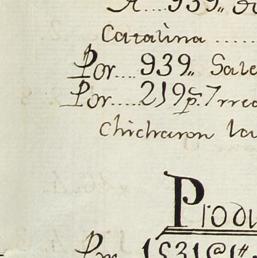 A....939,, 
Catalina ......
Por....939,, Sale
Por....219p.7
chicharon
Produ
Por 1531@1